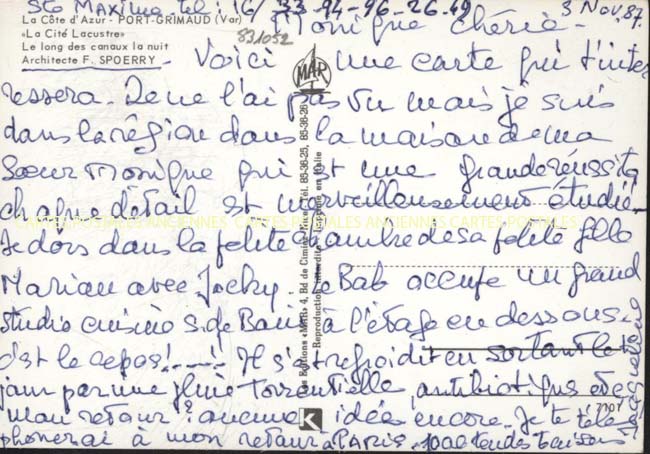 Ste Maxime tel: 16/ 33-94-96-26-49
3 Nov 87.
La Côte d'Azur - PORT-GRIMAUD (Var)
«La Cité Lacustre»
Le long des canaux la nuit
Architecte F. SPOERRY
831052
Monique Chérie -
Voici une carte qui t'inte
ressera. Je ne l'ai pas vu mais je suis
dans la région dans la maison de ma
Sœur Monique qui est une grande réussite
chaque détail est merveilleusement étudié.
Je dors dans la petite chambre de sa petite fille
Marian avec Jacky. Le Bab occupe un grand
studio cuisine S. de Bain à l'étage en dessous.
c'est le repos!...! Il s'est refroidi en sortant le
jour par une pluie torrentielle, antibiotique etc
mon retour? aucune idée encore. Je te télé
phonerai à mon retour à PARIS. 1000 tendes baisons
MAR
Les Editions «MAR» 4, Bd de Cimiez Nice Tél. 85-36-25, 85-36-26
Reproduction interdite - Imprimé en Italie
K
CARTES POSTALES ANCIENNES CARTES POSTALES ANCIENNES CARTES POSTALES